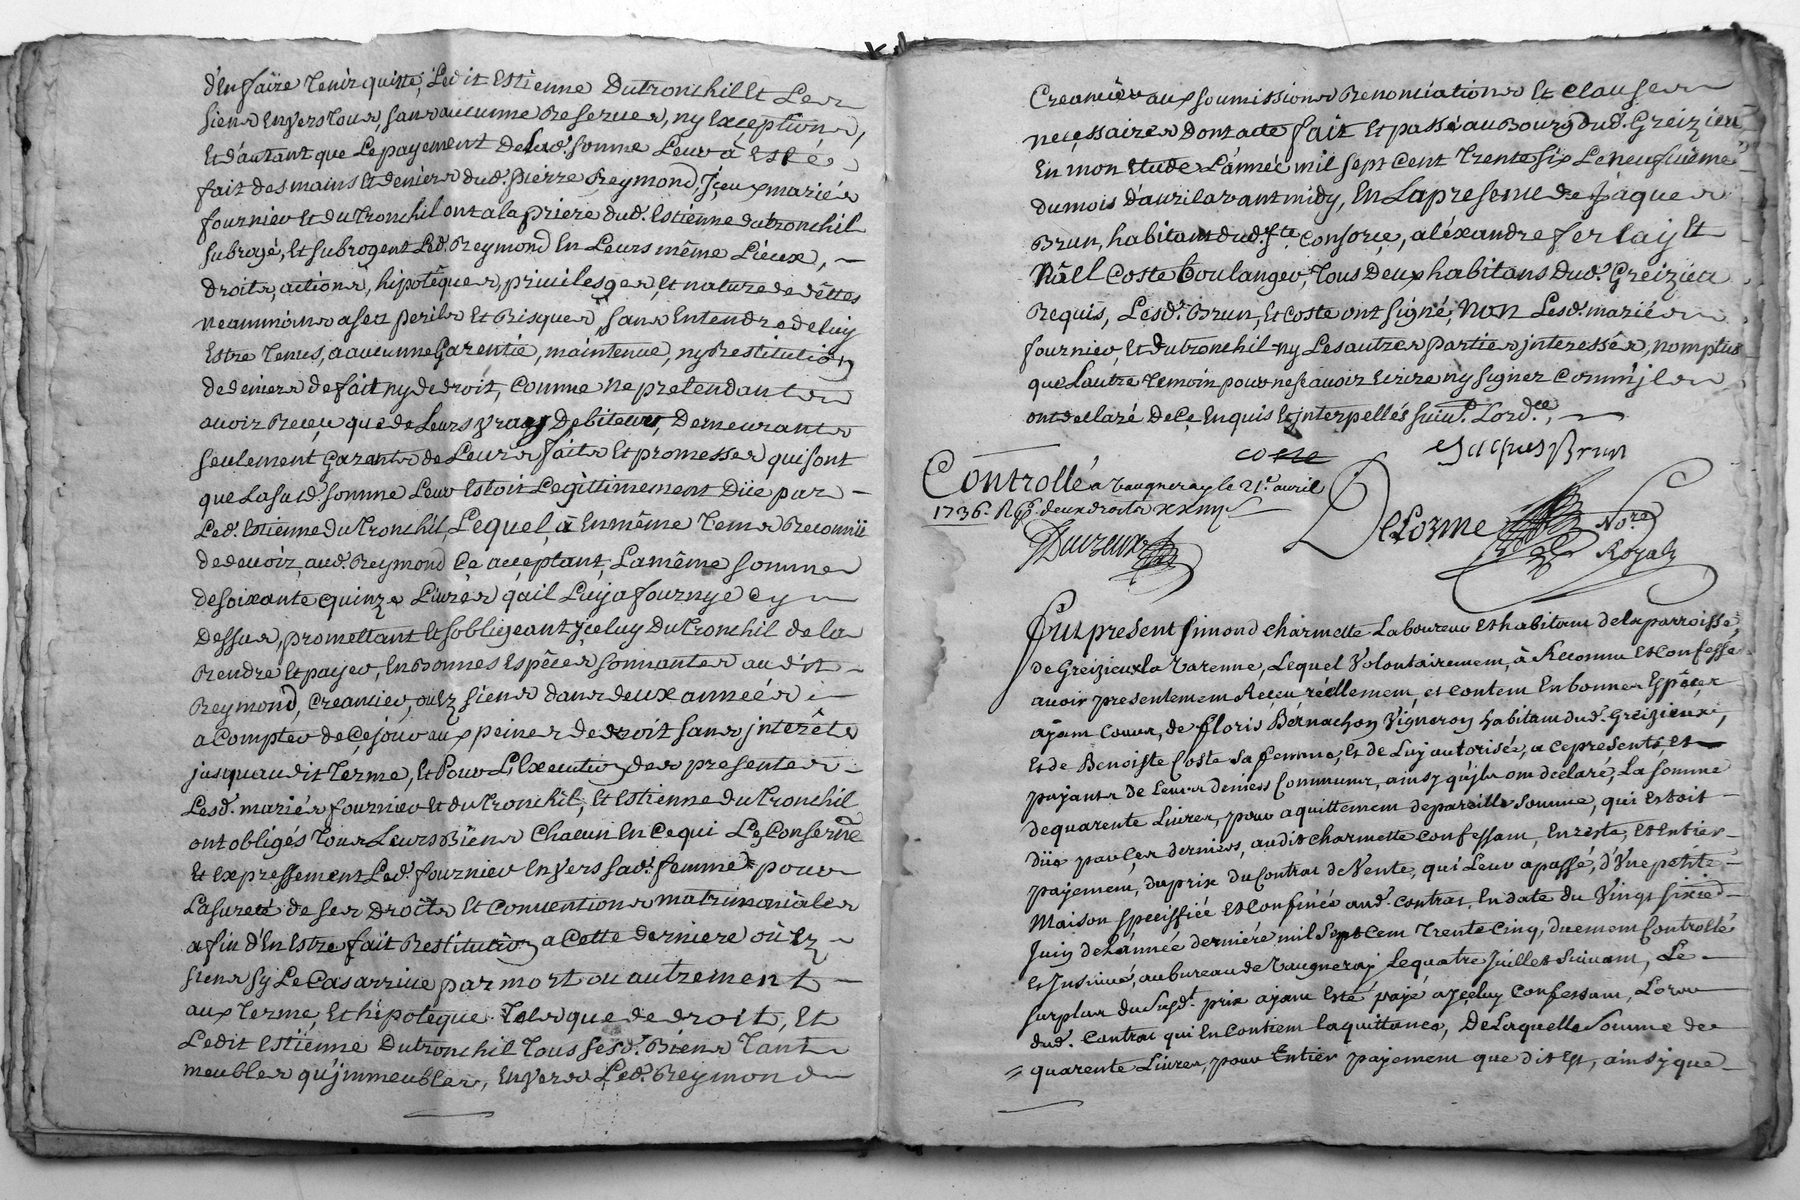 d'En faire tenir quitte, Ledit Estienne Dutronchil Et Les
siens Envers tous, sans aucunne Reserves, ny Exceptions,
Et d'autant que Le payement de lad.e somme Leur à Esté
fait des mains Et deniers dud.t pierre Reymond, Jçeux mariés
fournier Et du Tronchil ont a la priere dud.t Estienne dutronchil
subrogé, Et subrogent Led.t Reymond En Leurs même Lieux,
droits, actions, hipotèques, privileges, Et nature de dêttes
Neanmoins a ses perils Et Risques, sans Entendre de luy
Estre Tenus, a aucunne Garentie, maintenue, ny Restitution
de deniers de fait ny de droit, comme ne pretendants
avoir Reçeu que de Leurs vrays Debiteurs, Demeurants
seulement Garents de Leurs faits Et promesses qui sont
que La susd.e somme Leur Estoit Legittimement Düe par
Led.t Estienne du Tronchil, Lequel, à En même Tems Reconnü
de devoir, aud.t Reymond Ce acceptant, La même somme
de soixante Quinze Livres qu'il Luy a fournye Cy
Dessus, promettant Et s'obligeant Jceluy Du Tronchil de la
Rendre Et payer, En Bonnes Espêces sonnantes au dit
Reymond, Creancier, ou Ez siens dans deux années
a Compter de Ce jour aux peines de droit sans jnterêts
jusqu'au dit Terme, Et Pour L'Execution des presentes
Lesd.ts mariés fournier Et du Tronchil, Et Estienne du Tronchil
ont obligés Tous Leurs Biens Chacun En Ce qui Le Conserne
Et expressement Led.t fournier Envers sad.e femme pour
La sureté de ses Droits Et Conventions matrimoniâles
afin d'En Estre fait Restitution a Cette derniere où Ez
siens sy Le Cas arrive par mort ou autrement
aux Terme, Et hipoteque Tels que de droit, Et
Ledit Estienne Dutronchil Tous sesd.ts Biens Tant
meubles qu'jmmeubles, Envers Led.t Reymond
Creancier aux soumissions Renonciations Et Clauses
neçessaires dont acte fait Et passé au Bourg dud.t Greizieu
En mon Etude L'année mil sept Cent Trente six Le neufuieme
du mois d'avril avant midy, En La presence de Jaques
Brun, habitant dud.t S.te Consorçe, aléxandre ferlay Et
Nöell Coste Boulanger, Tous Deux habitans Dud.t Greizieu
Requis, Lesd.ts Brun, Et Coste ont signé, Non Lesd.ts mariés
fournier, Et dutronchil ny Les autres parties jnteressés, nomplus
que Lautre Temoin pour ne sçavoir Ecrire ny signer Comm'jls
ont declaré De Ce Enquis Et jnterpellés suiv.t Lord.ce
coste
Jacques Brun
Controllé a Vaugneray le 21.e avril
1736. R. deux droits
Delorme No.re
Royal
Fut present simond charmette Laboureur Et habitant de la parroisse
de Greizieux la Varenne, Lequel Volontairement, à Reconnu Et Confessé
avoir presentement Reçeu réellement, et content En bonnes Espêces
ayant Cours, de floris Bernachon Vigneron habitant dud.t Greizieux,
Et de Benoiste Coste sa femme, Et de Luy autorisée, a Ce presents, Et
payants de Leurs deniers Communs, ainsy qu'jls ont declaré, La somme
de quarente Livres, pour aquittement de pareille somme, qui Estoit
düe par Ces derniers, au dit charmette Confessant, En reste, Et Entier
payement, du prix du Contrat de Vente, qui Leur a passé, d'Vne petite
Maison speciffiée Et Confinée aud.t Contrat, En date du Vingt sixie
Juin de L'année derniére mil Sept Cent Trente Cinq, duement Controllé
Et Jnsinué, au bureau de Vaugneray Le quatre Juillet suivant, Le
surplus du susd.t prix ayant Esté payé a jceluy Confessant, Lors
dud.t Contrat qui En Contient la quittance, De Laquelle Somme de
quarente Livres, pour Entier payement que dit Est, ainsy que